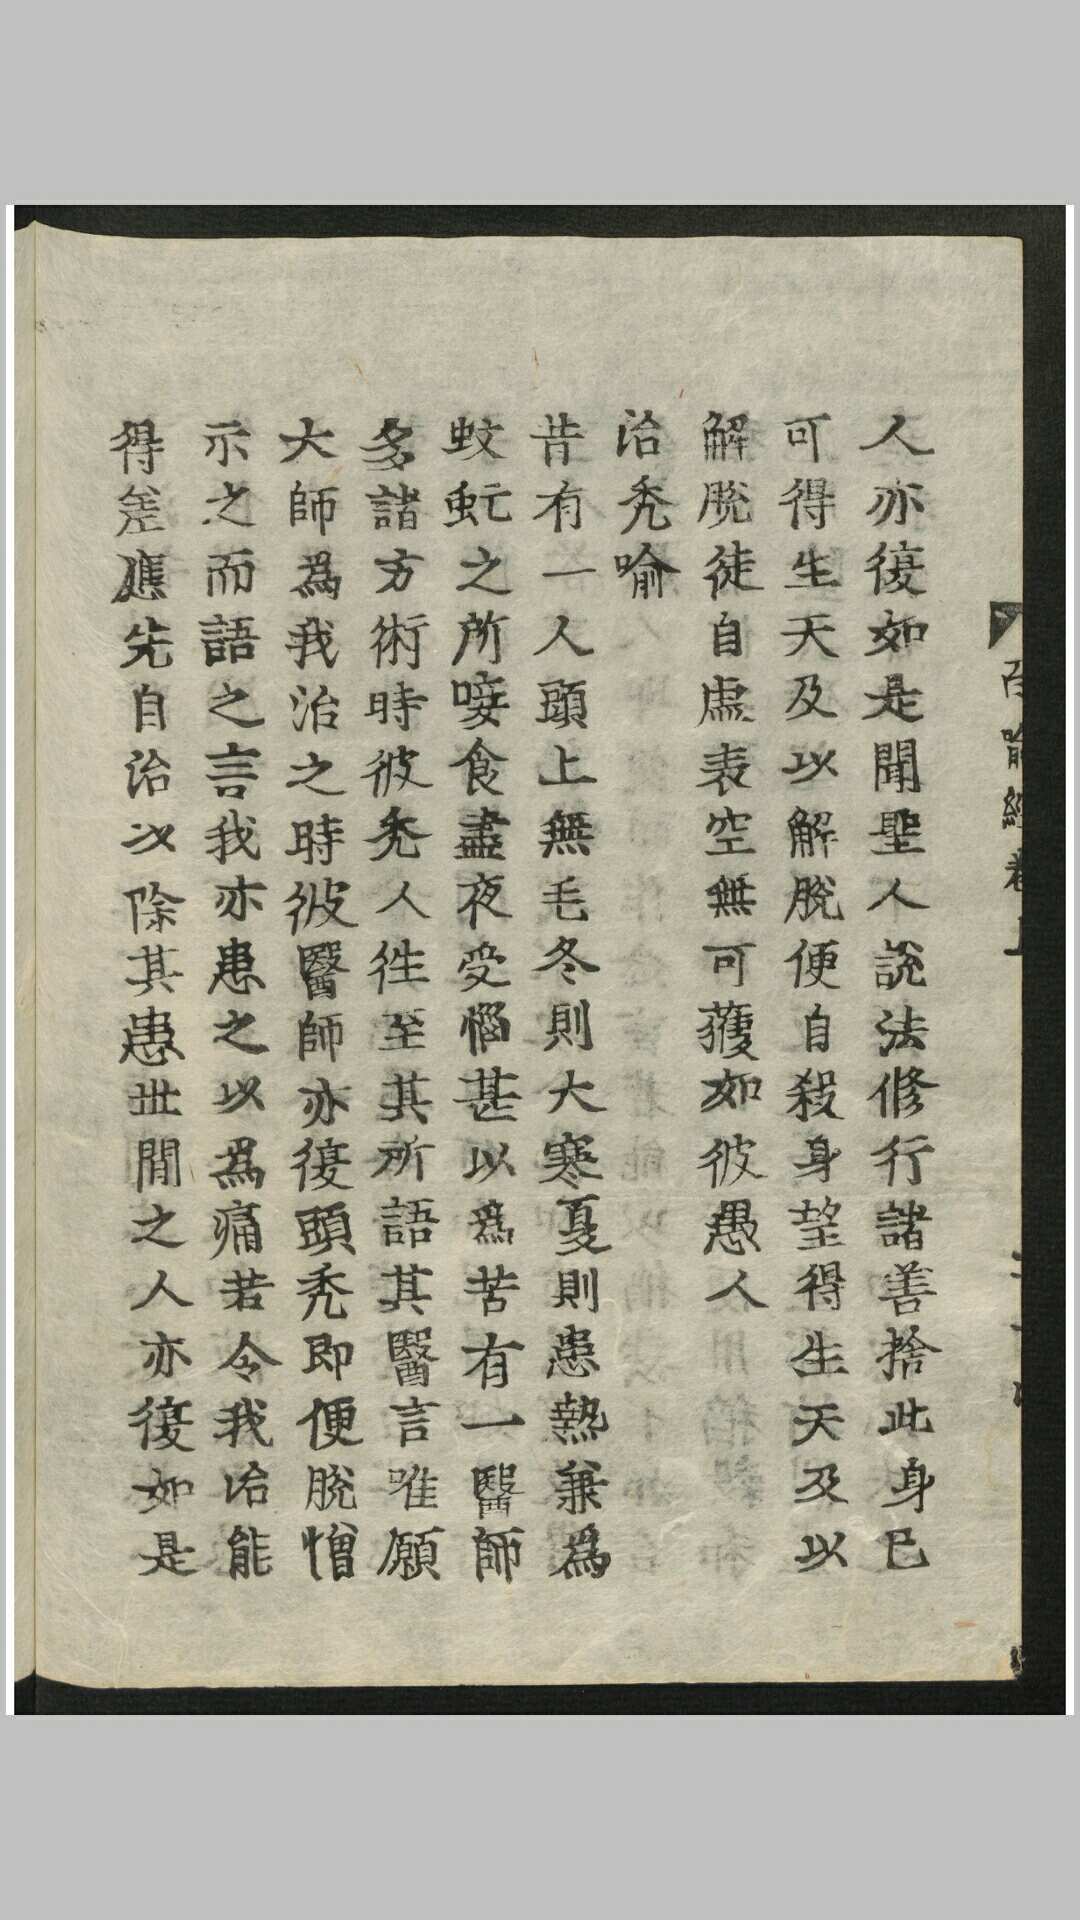 人亦復如是聞聖人說法修行諸善捨此身已
可得生天及以解脫便自殺身望得生天及以
解脫徒自虛丧空無可獲如彼愚人
治禿喻
昔有一人頭上無毛冬則大寒夏則患熱兼為
蚊虻之所唼食晝夜受惱甚以為苦有一醫師
多諸方術時彼禿人往至其所語其醫言唯願
大師為我治之時彼醫師亦復頭禿即便脫帽
示之而語之言我亦患之以為痛若令我治能
得差應先自治以除其患世間之人亦復如是
百喻經卷上